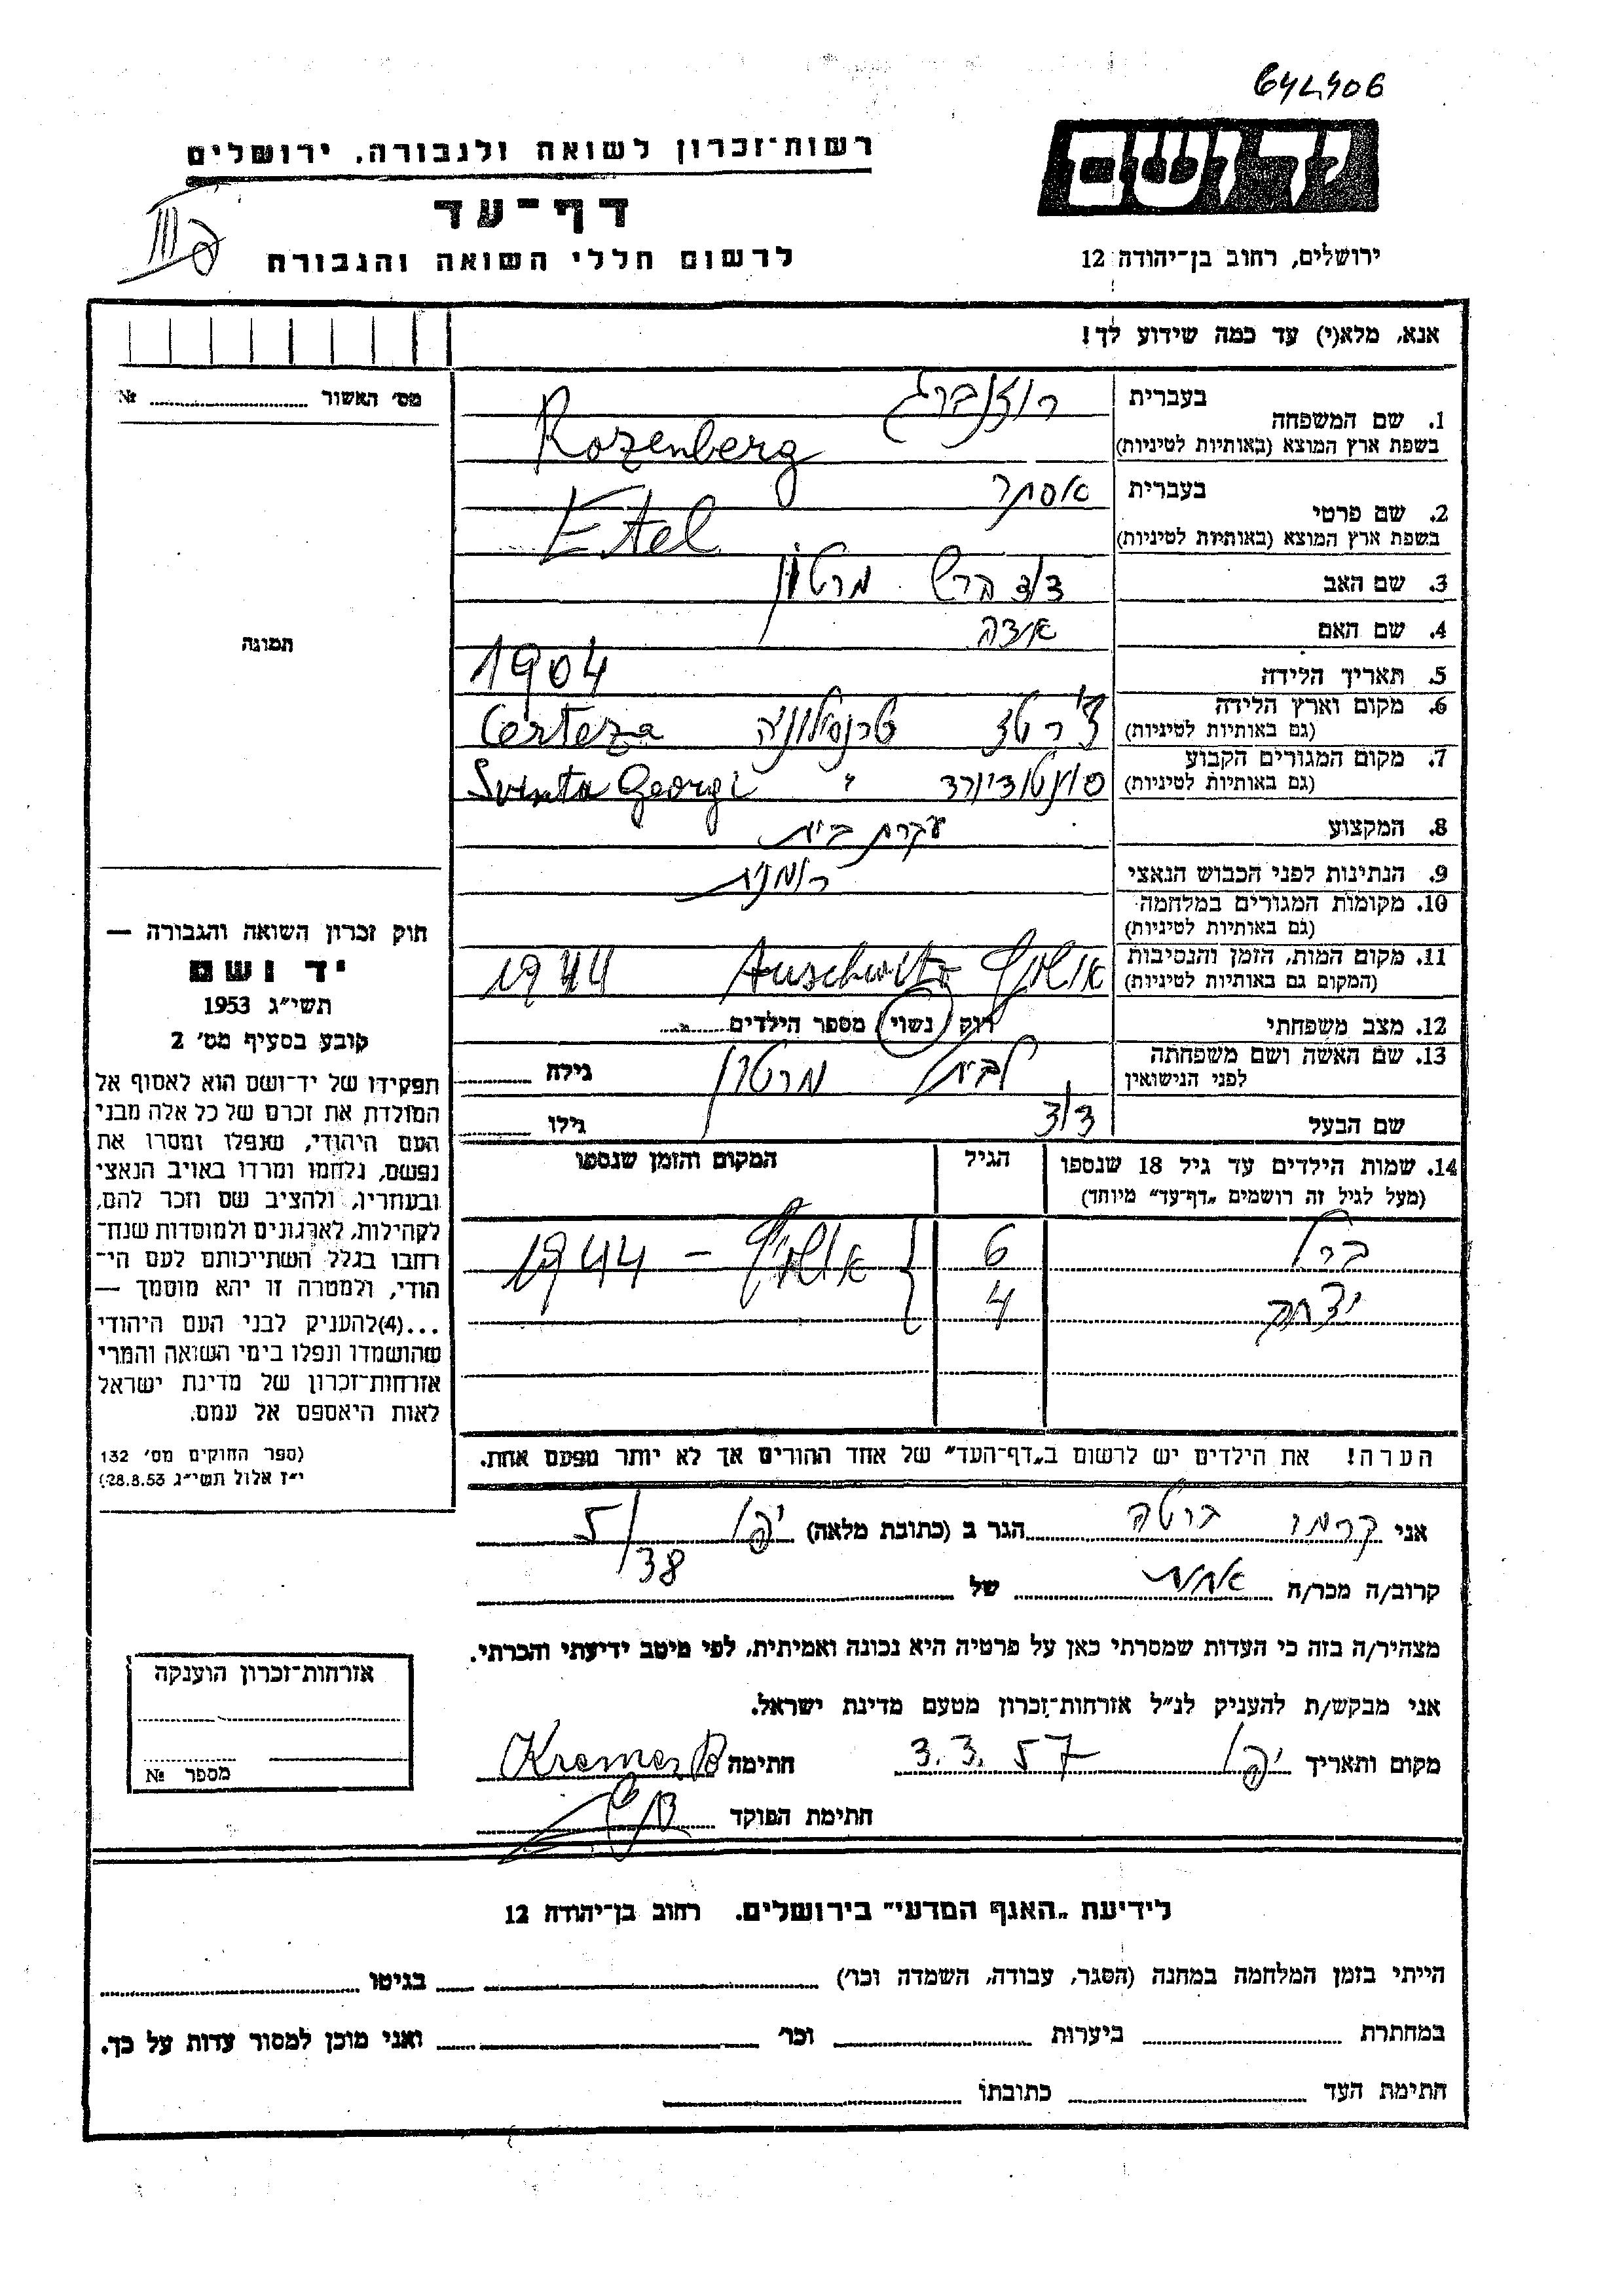 642406
יד ושם
רשות־זכרון לשואה ולגבורה, ירושלים
דף־עד
לרשום חללי השואה והגבורה
ירושלים, רחוב בן־יהודה 12
אנא, מלא(י) עד כמה שידוע לך!
מס׳ האשור № 
1. שם המשפחה
בעברית רוזנברג
בשפת ארץ המוצא (באותיות לטיניות) Rozenberg
2. שם פרטי
בעברית אסתר
בשפת ארץ המוצא (באותיות לטיניות) Etel
3. שם האב דוד הרש מרטון
4. שם האם
5. תאריך הלידה 1904
6. מקום וארץ הלידה
(גם באותיות לטיניות) טרנסילווניה Certeza
7. מקום המגורים הקבוע
(גם באותיות לטיניות) " Svinta Georgi
8. המקצוע עקרת בית
9. הנתינות לפני הכבוש הנאצי רומנית
10. מקומות המגורים במלחמה
(גם באותיות לטיניות)
11. מקום המות, הזמן והנסיבות
(המקום גם באותיות לטיניות) אושויץ Auschwitz 1944
12. מצב משפחתי רווק (נשוי) מספר הילדים
13. שם האשה ושם משפחתה
לפני הנישואין לבית מרטון גילה
שם הבעל דוד גילו
14. שמות הילדים עד גיל 18 שנספו הגיל המקום והזמן שנספו
(מעל לגיל זה רושמים „דף־עד״ מיוחד)
ברל 6 אושויץ – 1944
יצחק 4
הערה! את הילדים יש לרשום ב„דף־העד״ של אחד ההורים אך לא יותר מפעם אחת.
תמונה
חוק זכרון השואה והגבורה —
יד ושם
תשי״ג 1953
קובע בסעיף מס׳ 2
תפקידו של יד־ושם הוא לאסוף אל
המולדת את זכרם של כל אלה מבני
העם היהודי, שנפלו ומסרו את
נפשם, נלחמו ומרדו באויב הנאצי
ובעוזריו, ולהציב שם וזכר להם,
לקהילות, לארגונים ולמוסדות שנח־
רחבו בגלל השתייכותם לעם הי־
הודי, ולמטרה זו יהא מוסמך —
...(4)להעניק לבני העם היהודי
שהושמדו ונפלו בימי השואה והמרי
אזרחות־זכרון של מדינת ישראל
לאות היאספם אל עמם.
(ספר החוקים מס׳ 132
י״ז אלול תשי״ג 28.8.53)
אני קרמר ברטה הגר ב (כתובת מלאה) יפו 5/38
קרוב/ה מכר/ה אחות של
מצהיר/ה בזה כי העדות שמסרתי כאן על פרטיה היא נכונה ואמיתית, לפי מיטב ידיעתי והכרתי.
אני מבקש/ת להעניק לנ״ל אזרחות־זכרון מטעם מדינת ישראל.
מקום ותאריך יפו 3.3.57 חתימה Kremer B
חתימת הפוקד
אזרחות־זכרון הוענקה
מספר №
לידיעת „האגף המדעי״ בירושלים. רחוב בן־יהודה 12
הייתי בזמן המלחמה במחנה (הסגר, עבודה, השמדה וכו׳) בגיטו
במחתרת ביערות וכו׳ ואני מוכן למסור עדות על כך.
חתימת העד כתובתו